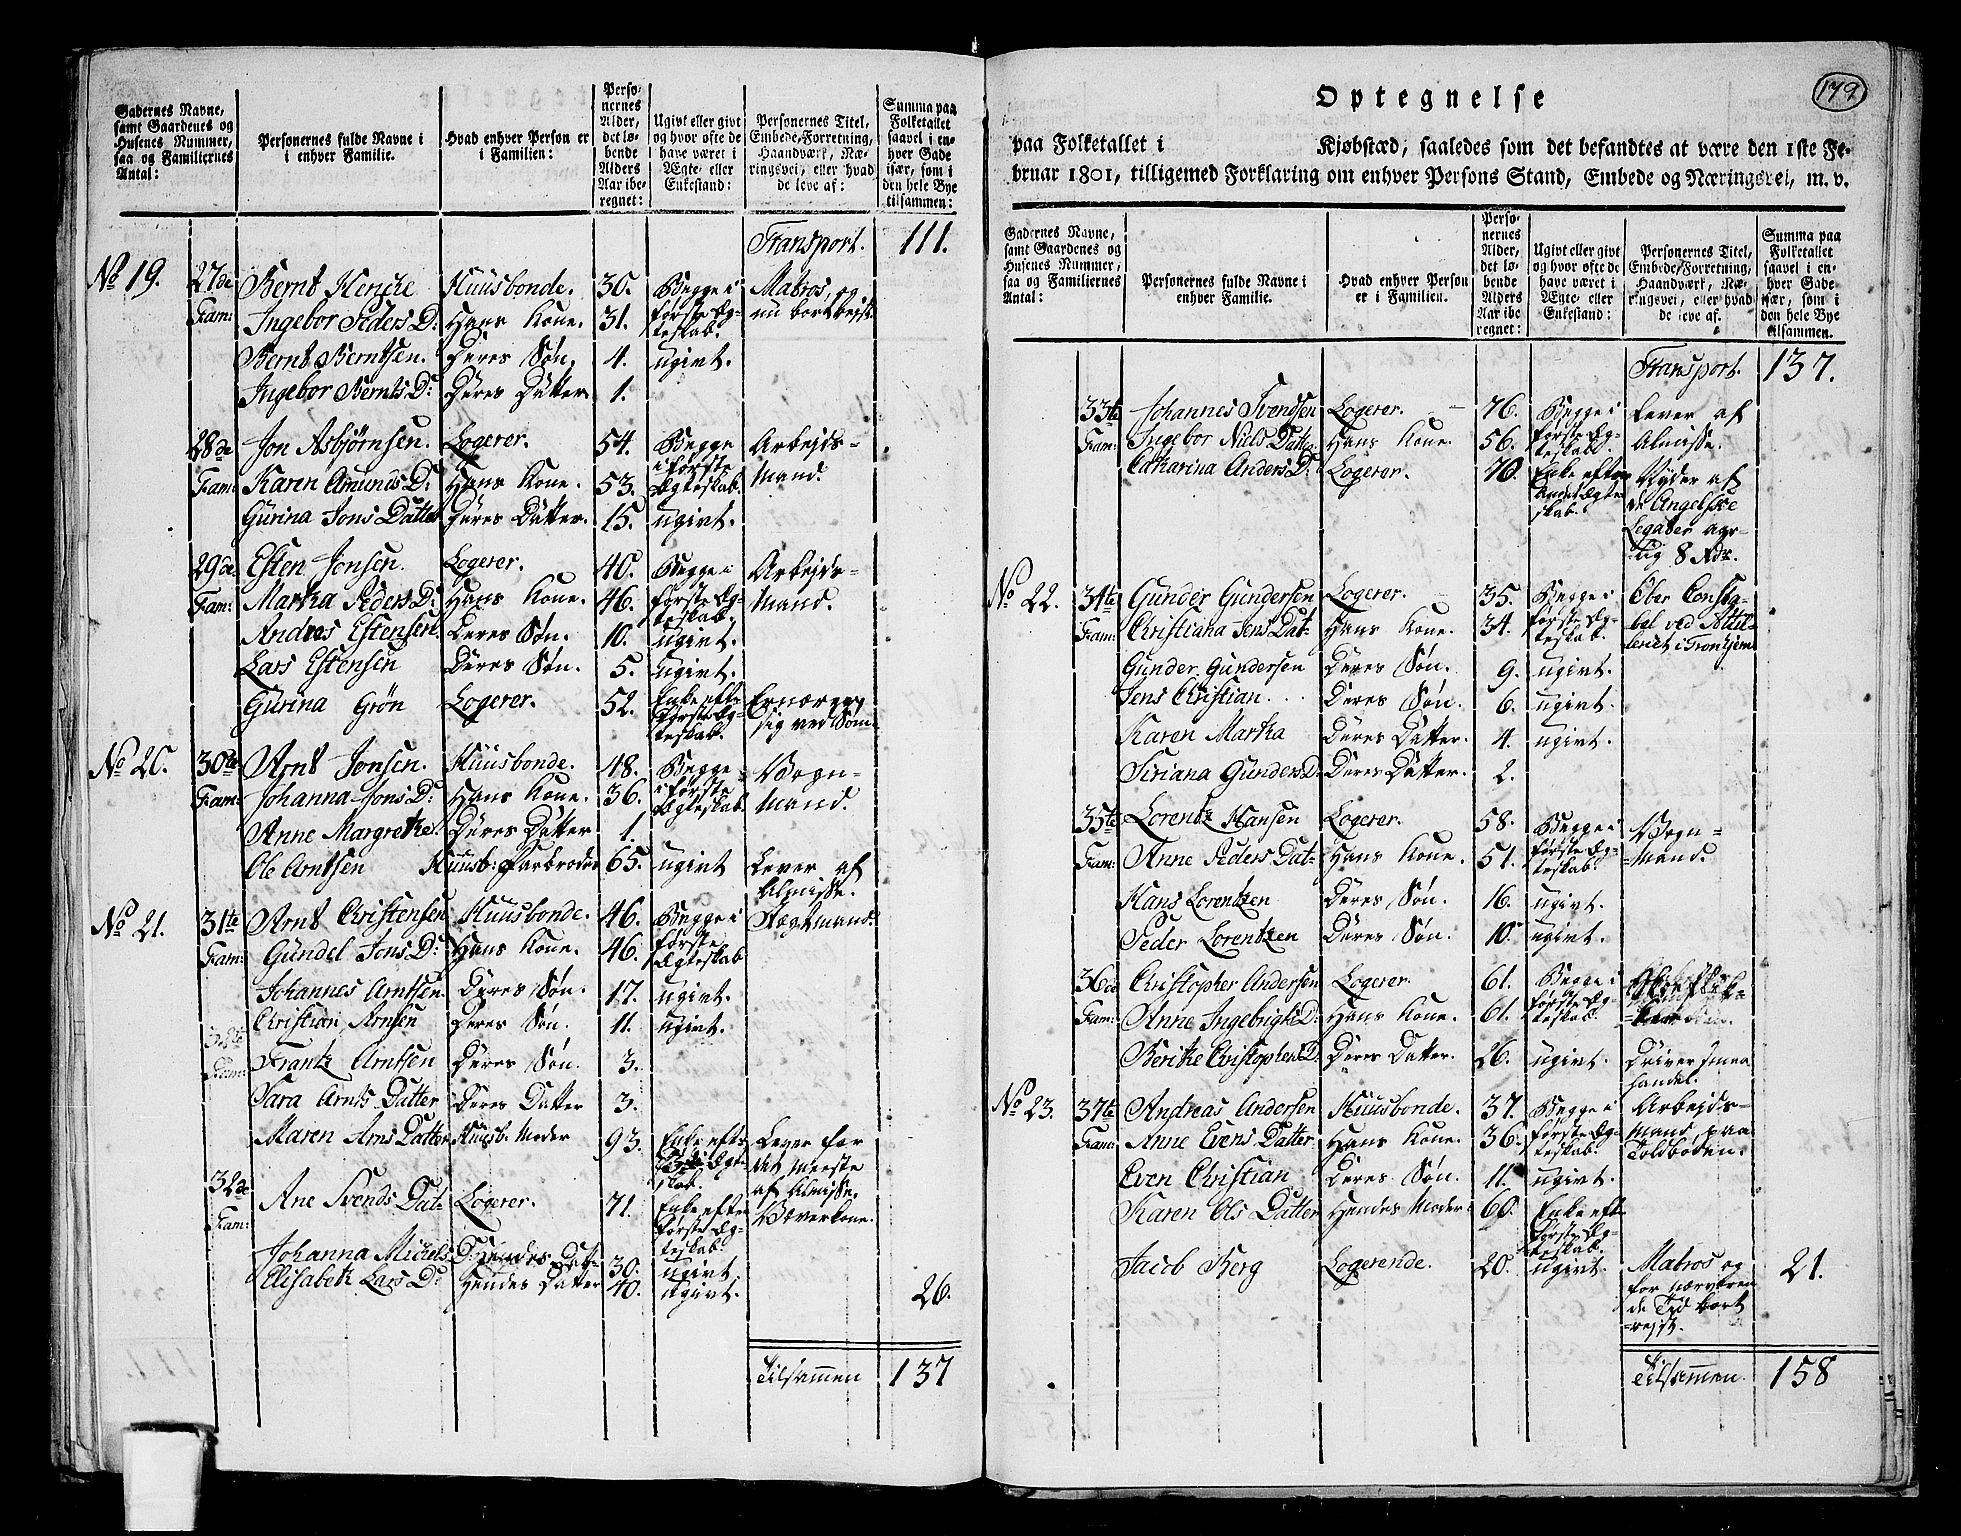 Gadernes Navne, samt Gaardenes og Husenes Nummer, saa og Familiernes Antal:
Personernes fulde Navne i i enhver Familie.
Hvad enhver Person er i Familien:
Personernes Alder, det løbende Alders Aar iberegnet:
Ugivt eller givt og hvor ofte de have været i Ægte- eller Enkestand:
Personernes Titel, Embede, Forretning, Haandværk, Næringsvei, eller hvad de leve af:
Summa paa Folketallet saavel i enhver Gade især, som i den hele Bye tilsammen:
Transport. 111.
No 19. 27de Fam: Bernt Hencke Huusbonde. 30. Begge i første Ægteskab. Matros og nu bortreist
Ingebor Peders D: Hans Kone. 31.
Bernt Berntsen. Deres Søn. 4. ugivt.
Ingebor Bernts D: Deres Datter 1.
28de Fam: Jon Asbjørnsen. Logerer. 54. Begge i første Ægteskab. Arbejds-mand.
Karen Amunds D: Hans Kone. 53.
Gurina Jons Datter Deres Datter. 15. ugivt.
29de Fam: Esten Jonsen. Logerer. 40. Begge i første Ægteskab. Arbejds-mand.
Martha Peders D: Hans Kone. 46.
Andres Estensen Deres Søn. 10. ugivt.
Lars Estensen Deres Søn. 5. ugivt.
Gurina Grön Logerer. 52. Enke efter første Ægteskab. Ernærer sig ved Søm.
No 20. 30te Fam: Arnt Jonsen. Huusbonde. 48. Begge i første Ægteskab Vogn-mand.
Johanna Jons D: Hans Kone. 36.
Anne Margrethe. Deres Datter 1.
Ole Arntsen Huusb: Farbroder 65. ugivt Lever af Almisse.
No 21. 31te Fam: Arnt Christensen Huusbonde. 46. Begge i første Ægteskab
Gundel Jons D: Hans Kone. 46.
Johannes Arntsen. Deres Søn. 17. ugivt.
Christian Arnsen Deres Søn. 11. ugivt.
Frantz Arntsen Deres Søn. 3.
Sara Arnts Datter Deres Datter 3.
Maren Arns Datter Huusb. Moder 93. Enke efter Ægteskab. Lever for det meeste af Almisse.
32de Fam: Ane Svends Dat- Logerer. 71. Enke efter første Ægteskab. Væverkone.
Johanna Michels D: Hendes Dat- 30. ugivt
Elisabeth Lars D: Hendes Datter 40. ugivt. 26.
Tilsammen 137
179
Optegnelse
paa Folketallet i Kjøbstæd, saaledes som det befandtes at være den 1ste Februar 1801, tilligemed Forklaring om enhver Persons Stand, Embede og Næringsvei, m. v.
Gadernes Navne, samt Gaardenes og Husenes Nummer, saa og Familiernes Antal:
Personernes fulde Navne i enhver Familie.
Hvad enhver Person er i Familien.
Personernes Alder, det løbende Alders Aar iberegnet:
Ugivt eller givt og hvor ofte de have været i Ægte- eller Enkestand:
Personernes Titel, Embede, Forretning, Haandværk, Næringsvei, eller hvad de leve af.
Summa paa Folketallet saavel i enhver Gade især, som i den hele Bye tilsammen.
Transport. 137.
33te Fam: Johannes Svendsen Logerer. 76. Begge i første Ægteskab. Lever af Almisse.
Ingebor Niels Datter Hans Kone. 56.
Catharina Anders D: Logerer. 70. Enke efter Andet Ægteskab. Nyder af de Angelske Legater aarlig 8 Rdr.
No 22. 34te Fam: Gunder Gundersen Logerer. 35. Begge i første Ægteskab.
Christiana Jens Dat- Hans Kone. 34.
Gunder Gundersen Deres Søn. 9. ugivt.
Jens Christian. Deres Søn. 6. ugivt.
Karen Martha Deres Datter. 4. ugivt.
Siriana Gunders D: Deres Datter. 2.
35te Fam: Lorentz Hansen Logerer. 58. Begge i første Ægteskab. Vogn-mand.
Anne Peders Dat- Hans Kone. 51.
Hans Lorentzen Deres Søn. 16. ugivt.
Peder Lorentzen Deres Søn. 10. ugivt.
36de Fam: Christopher Andersen Logerer. 61. Begge i første Ægteskab.
Anne Ingebrigts D: Hans Kone. 61.
Berithe Christophers D: Deres Datter. 26. ugivt. Driver smaa handel.
No 23. 37te Fam: Andreas Andersen Huusbonde. 37. Begge i første Ægteskab. Arbejds-mand paa Toldboden.
Anne Evens Datter Hans Kone. 36.
Even Christian Deres Søn. 11. ugivt.
Karen Ols Datter Hendes Moder 60. Enke eft første Ægteskab.
Jacob Berg Logerende. 20. ugivt. Matros og for nærværende Tid bortrejst. 21.
Tilsammen. 158